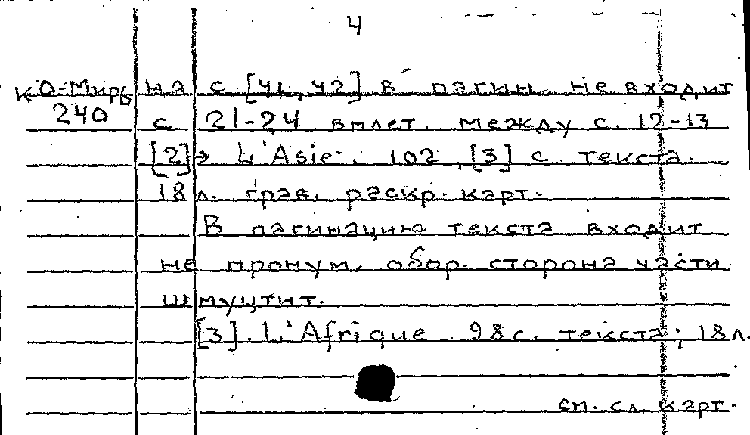 4
КО-Мирь на с [41, 42] в пагин. не входит
240 с 21-24 вплет. между с. 12-13
[2]. L'Asie. 102, [3] с. текста.
18 л. грав. раскр. карт.
В пагинацию текста входит
не пронум. обор. сторона части
шмуцтит.
[3]. L'Afrique. 98 с. текста; 18 л.
см. сл. карт.